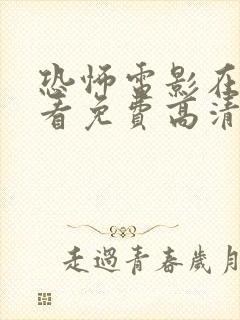 恐怖雷影在
看免费高清
走過青春歲月